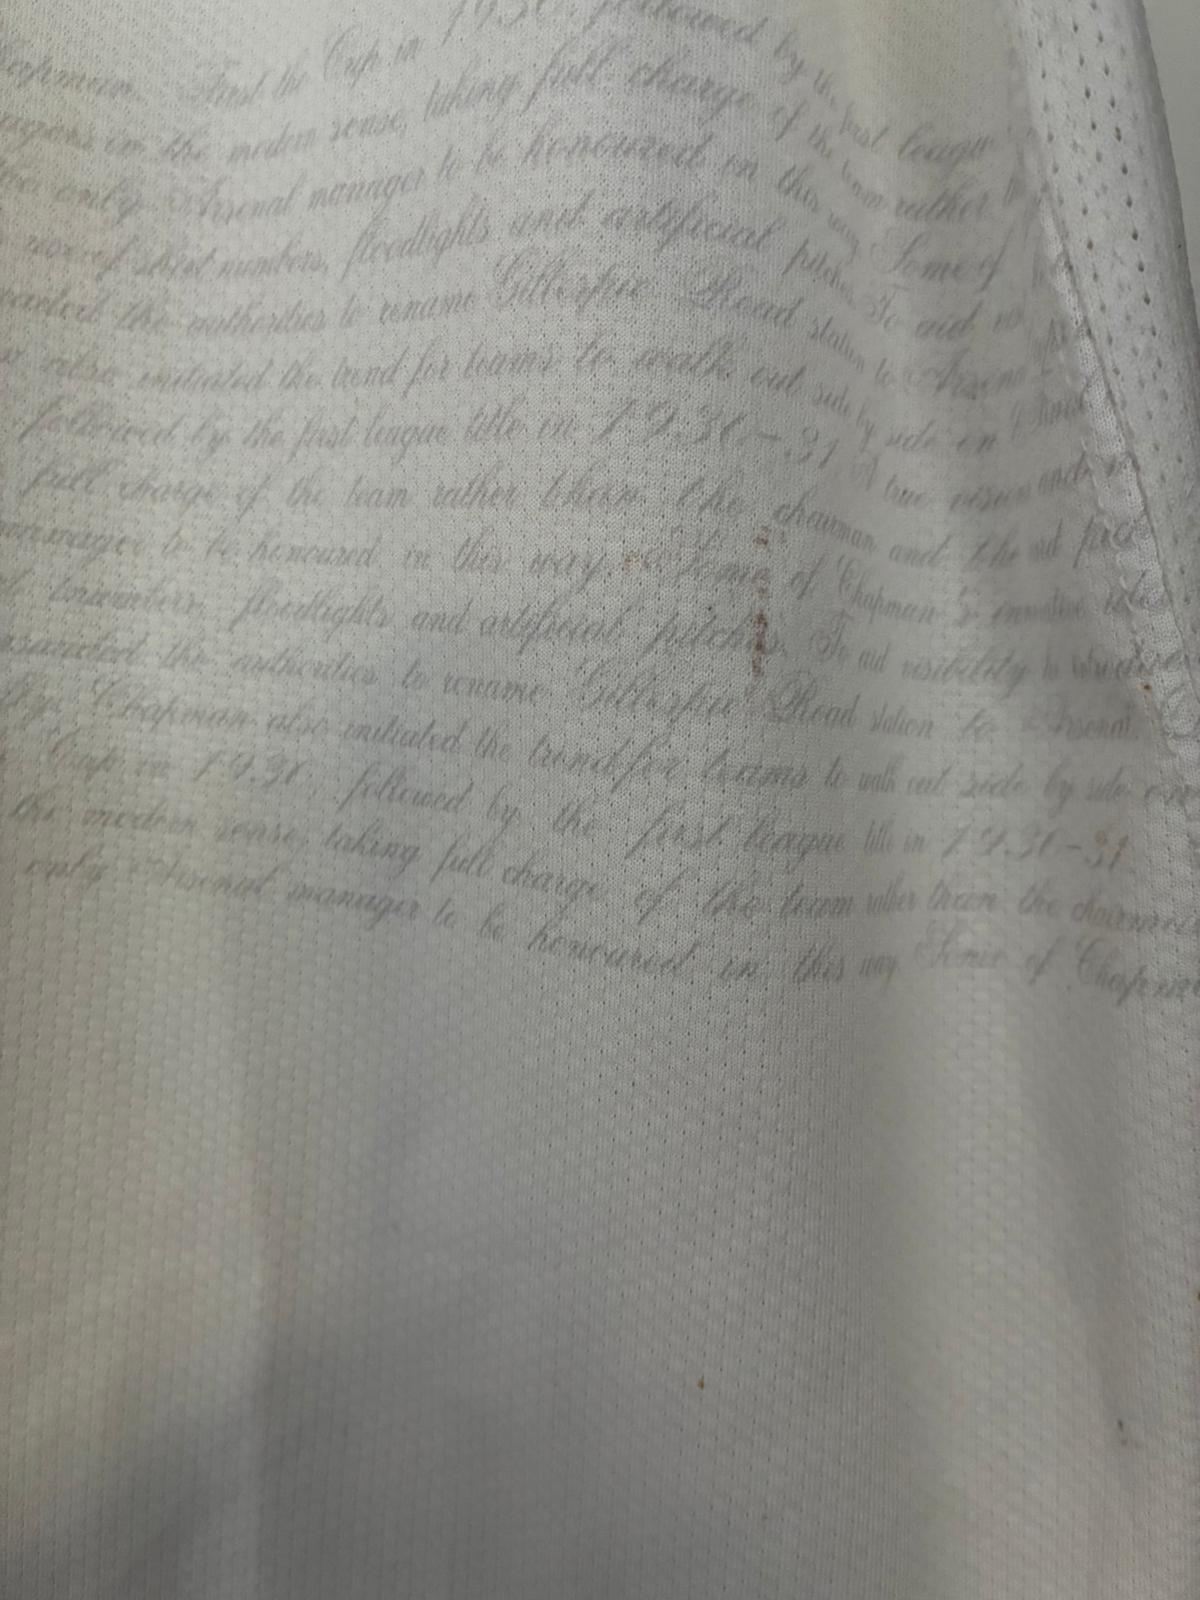 Chapman. First the Cup in 1930, followed by the first league
in the modern sense, taking full charge of the team rather
the only Arsenal manager to be honoured in this way. Some of
use of shirt numbers, floodlights and artificial pitches. To aid
the authorities to rename Gillespie Road station to Arsenal
also initiated the trend for teams to walk out side by side on
followed by the first league title in 1930-31. A true vision
full charge of the team rather than the chairman and the
manager to be honoured in this way. Some of Chapman's innovative
numbers, floodlights and artificial pitches. To aid visibility he introduced
the authorities to rename Gillespie Road station to Arsenal.
Chapman also initiated the trend for teams to walk out side by side on
Cup in 1930, followed by the first league title in 1930-31.
the modern sense, taking full charge of the team rather than the
only Arsenal manager to be honoured in this way. Some of